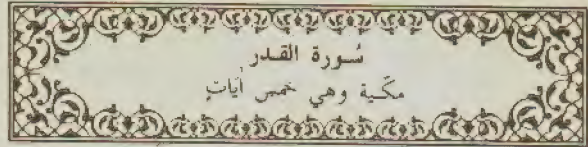 سُورة القدر
مكية وهي خمس آيات